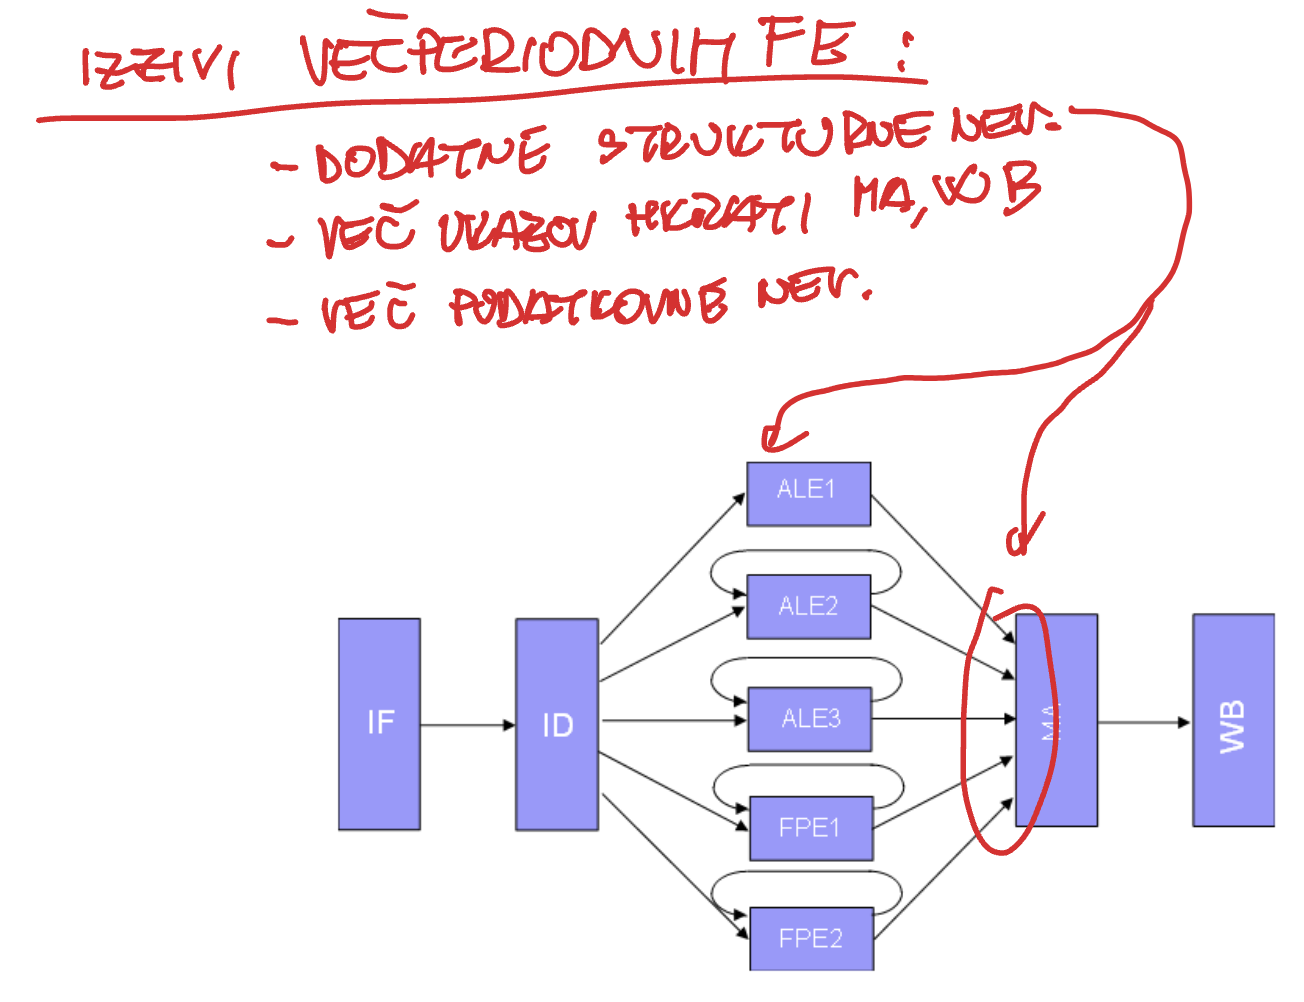 IZZIVI VEČPERIODNIH FE:
- DODATNE STRUKTURNE NEV.
- VEČ UKAZOV HKRATI MA, WB
- VEČ PODATKOVNE NEV.
ALE1
ALE2
ALE3
FPE1
FPE2
IF
ID
MA
WB